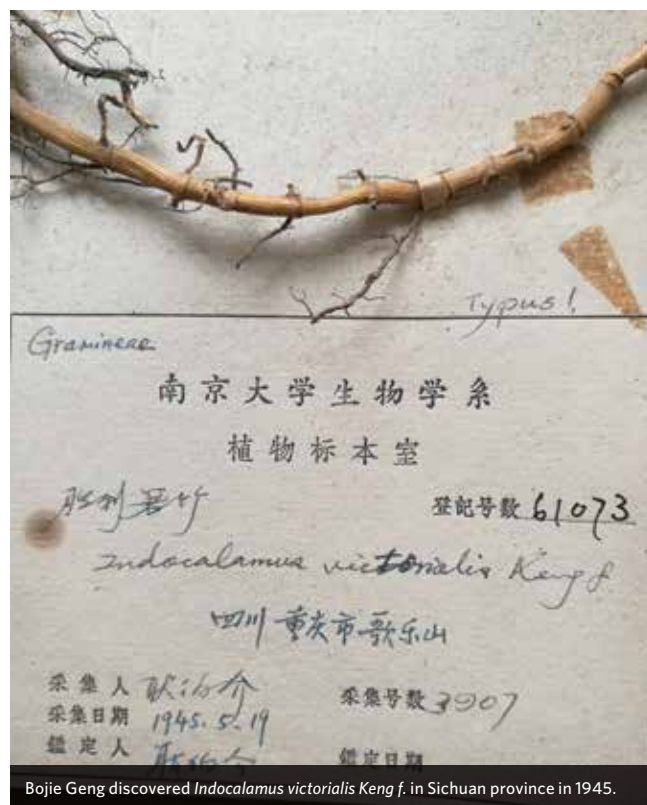 Typus!
Gramineae
南京大学生物学系
植物标本室
胜利箬竹
登记号数 61073
Indocalamus victorialis Keng f
四川 重庆市歌乐山
采集人 耿伯介
采集号数 3907
采集日期 1945.5.19
鑑定人 耿伯介
鑑定日期
Bojie Geng discovered Indocalamus victorialis Keng f. in Sichuan province in 1945.